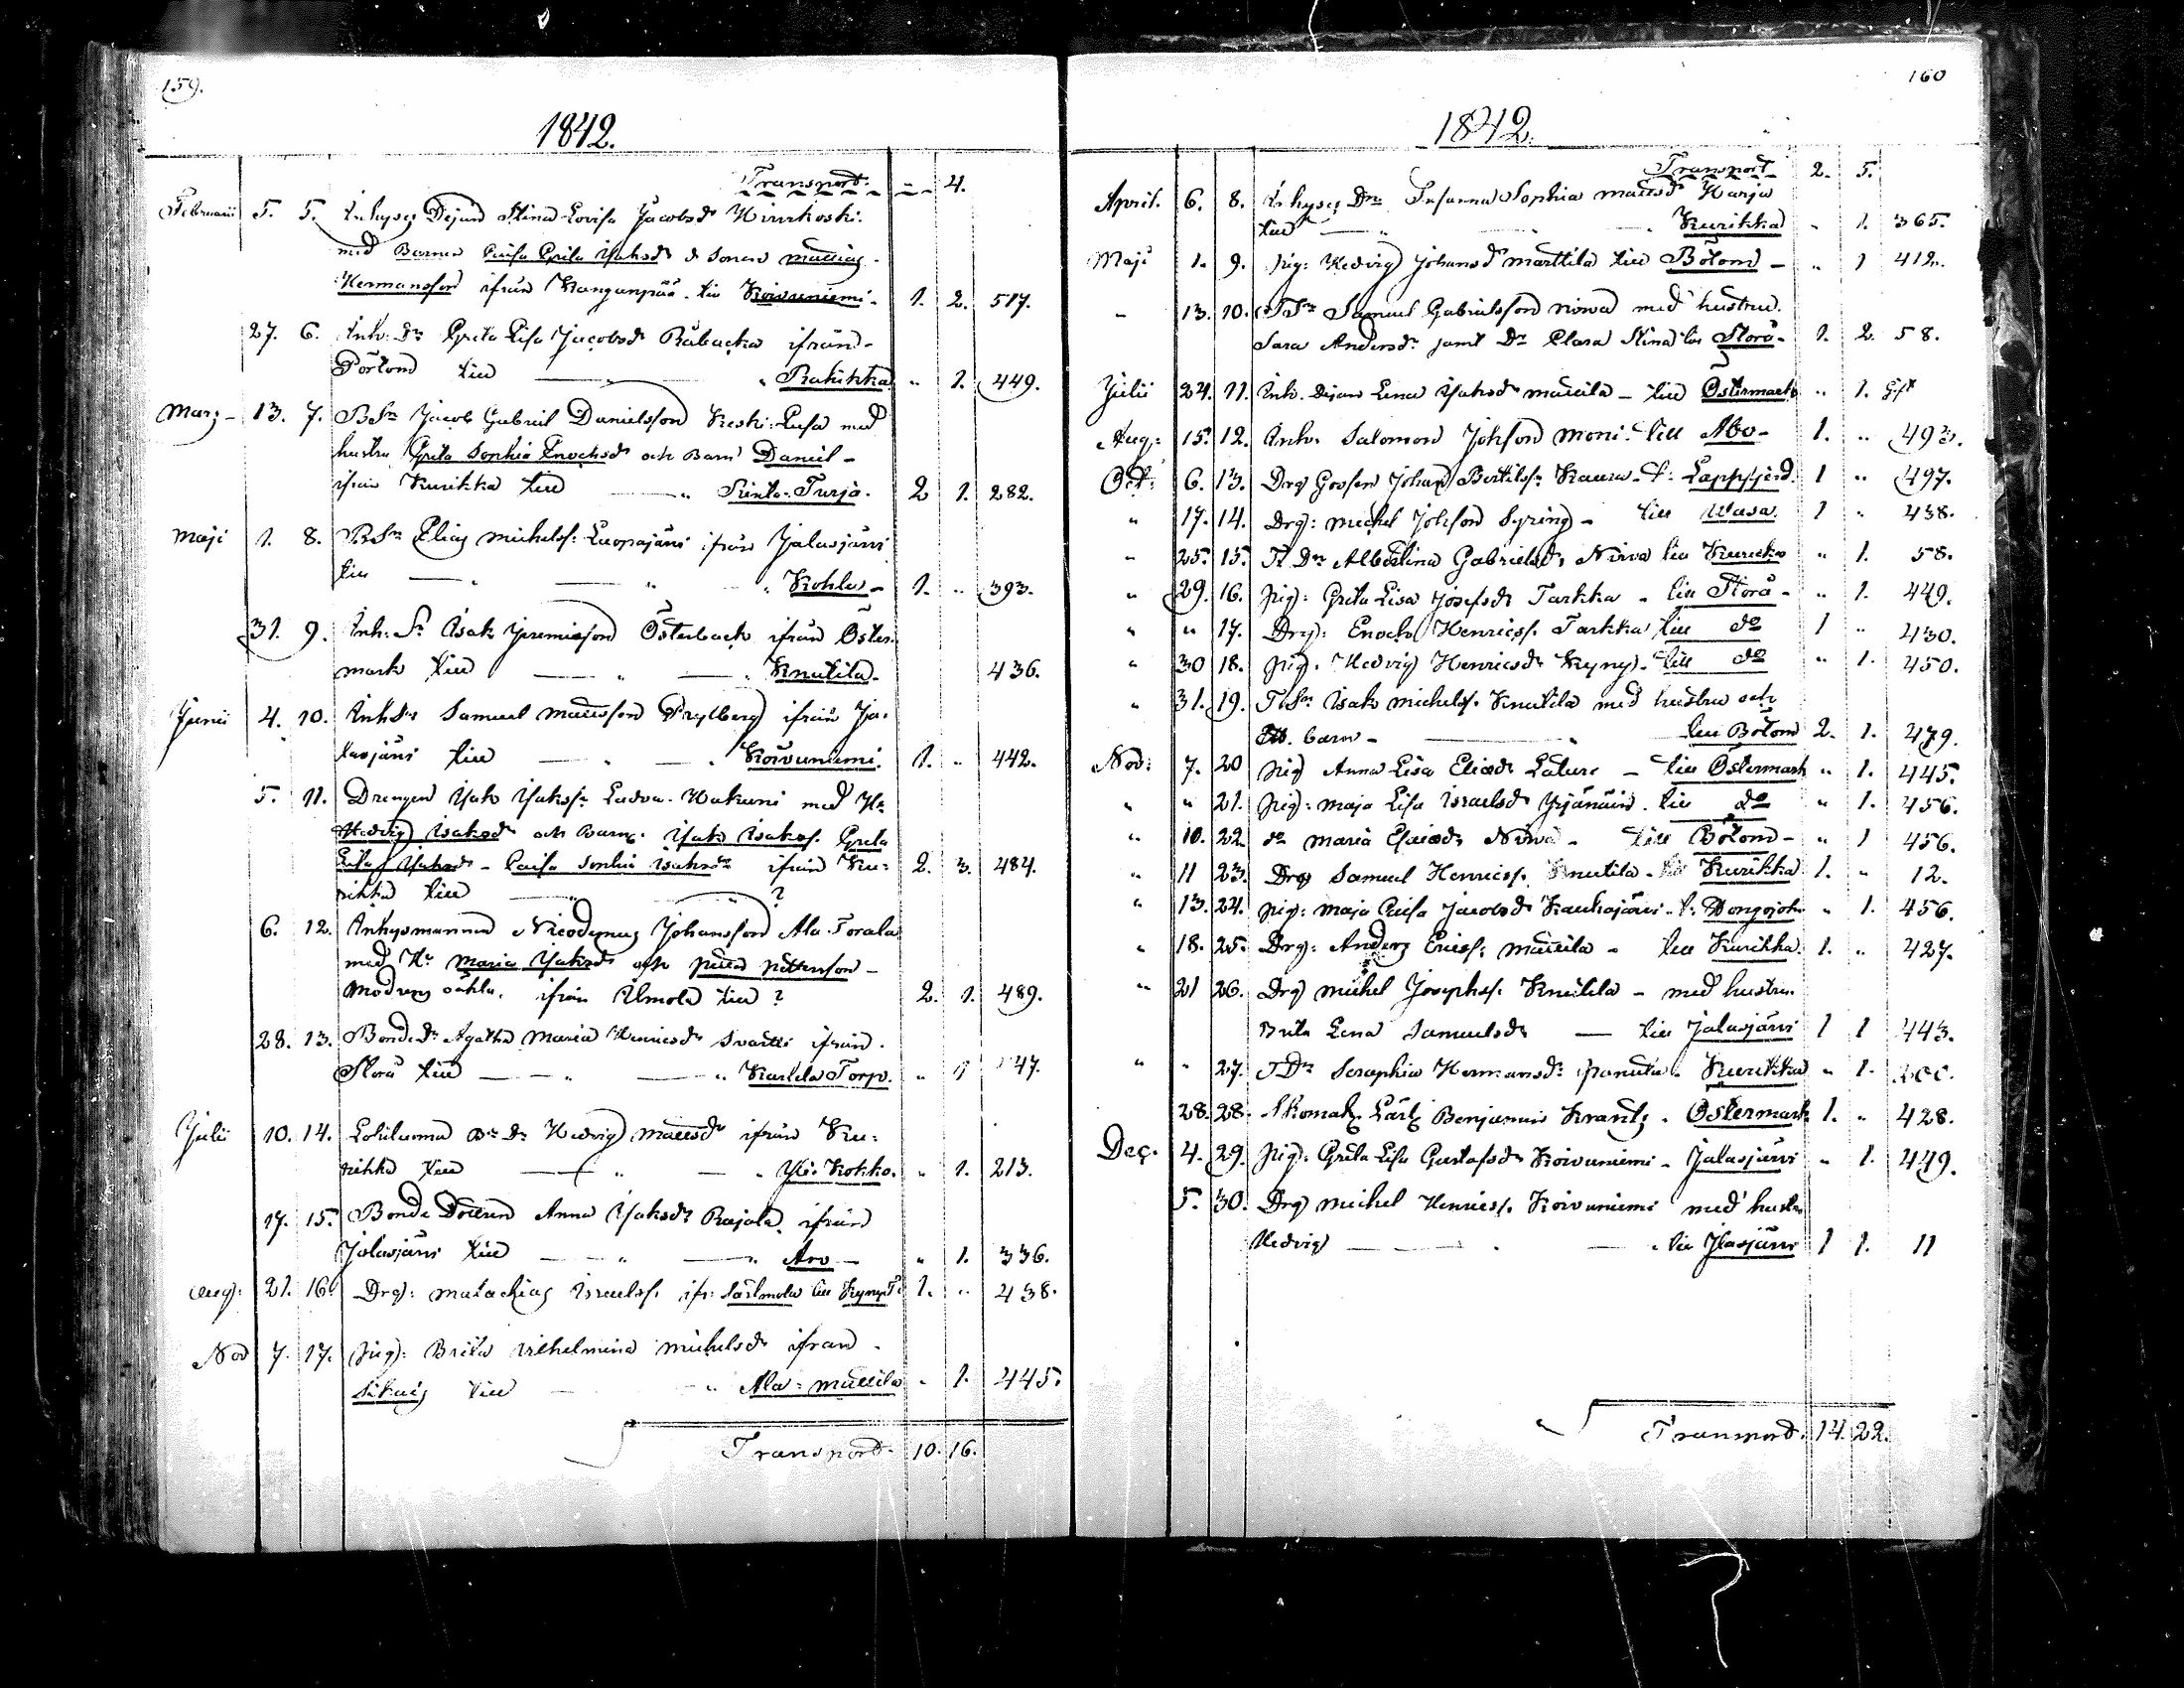 159.
1842.
Transport. - - 4.
Februarii 5. 5. Inhyses Dejan Stina Lovisa Jacobsdr Hiirikoski.
med Barnen Caisa Greta Isaksdr & Sonen Mattias
Hermansson ifrån Kanganpää till Koivuniemi. 1. 2. 517.
27. 6. Inh. Dr Greta Lisa Jacobsdr Råbacka ifrån
Pörtom till " Rahikka " 1. 449.
Marz 13. 7. BSn Jacob Gabriel Danielsson Keski-Lusa med
hustru Greta Sophia Enochsdr och Barn Daniel
ifrån Kurikka till " Rinta-Turja. 2 1. 282.
Maji 1. 8. BSn Elias Michelss. Luopajärvi ifrån Jalasjärvi
till " " " Kohlas 1. " 393.
31. 9. Inh. Sn Isak Jeremiasson Österback ifrån Öster-
mark till " " Knutila. 436.
Junii 4. 10. InhSn Samuel Mattsson Prylberg ifrån Ja-
lasjärvi till " Koivuniemi. 1. " 442.
5. 11. Drengen Isak Isakss. Ludva-Hakuni med Hu
Hedvig Isaksdr och Barn: Isak Isakss. Greta
Lisa Isaksdr - Caisa Sophia Isaksdr ifrån Ku- 2. 3. 484.
rikka till " " ?
6. 12. Inhysmannen Nicodemus Johansson Ala-Torala
med Hu Maria Isaksdr och
Modrens oäkta, ifrån Ilmola till ? 2. 1. 489.
28. 13. Bonde Dr Agatha Maria Henricsdr Svartti ifrån
Storå till " " Karlela Torp. " 1 47.
Julii 10. 14. Lohiluoma Bs Dr Hedvig Mattsdr ifrån Ku-
rikka till " " Yli-Kokko. " 1. 213.
17. 15. Bonde Dottren Anna Isaksdr Rajala ifrån
Jalasjärvi till " " Aro " 1. 336.
Aug: 21. 16. Drg: Malachias Israelss. ifr: till Kyny 1. " 438.
Nov 7. 17. Pig: Brita Vilhelmina Michelsdr ifrån
till " Ala-Mattila " 1. 445.
Transport. 10. 16.
160
1842.
Transport 2. 5.
April. 6. 8. Inhyses Dr Susanna Sophia Mattsdr Harja
till " " Kurikka " 1. 365.
Maji 1. 9. Pig: Hedvig Johansdr Marttila till Bötom " 1 412.
" 13. 10. TSn Samuel Gabrielsson Nirva med hustru
Sara Andersdr samt Dr Clara Stina till Storå 1. 2. 58.
Julii 24. 11. Inh. Dejan Lena Isaksdr Mattila - till Östermark " 1. Gift
Aug: 15. 12. Inh. Salomon Johsson Moni till Åbo 1. " 493.
Oct: 6. 13. Drg Gossen Johan Bertilss. Kaura t: Lappfjerd. 1 " 497.
" 17. 14. Drg: Michel Johsson Syring - till Wasa. 1 " 438.
" 25. 15. T. Dr Albertina Gabrielsdr Nirva till Kurikka " 1. 58.
" 29. 16. Pig: Greta Lisa Josefsdr Tarkka - till Storå - " 1. 449.
" " 17. Drg: Enoch Henricss. Tarkka till do 1 " 430.
" 30 18. Pig. Hedvig Henricsdr Kyny - till do " 1. 450.
" 31. 19. TSn Isak Michelss. Knutila med hustru och
barn - " till Bötom 2. 1. 479.
Nov: 7. 20 Pig Anna Lisa Eliasdr Laturi - till Östermark " 1. 445.
" " 21. Pig: Maja Lisa Israelsdr Yrjänäin. till do " 1. 456.
" 10. 22. do Maria Esaiasdr Nirva - till Bötom - " 1 456.
" 11 23. Drg Samuel Henricss. Knutila - till Kurikka 1. " 12.
" 13. 24. Pig: Maja Caisa Jacobsdr Kauhajärvi t: Hongojoki " 1. 456.
" 18. 25. Drg: Anders Ericss: Mattila - till Kurikka. 1. " 427.
" 21 26. Drg Michel Josephss. Knutila - med hustru
Brita Lena Samuelsdr — till Jalasjärvi 1 1 443.
" " 27. TDr Seraphia Hermansdr Panula - Kurikka " 1.
28. 28. Skomak. Lärl: Benjamin Krantz. Östermark 1. " 428.
Dec. 4. 29. Pig: Greta Lisa Gustafsdr Koivuniemi - Jalasjärvi " 1. 449.
5. 30. Drg Michel Henricss. Koivuniemi med hustru
Hedvig — " — till Jlasjärvi 1 1. 11
Transport. 14. 22.